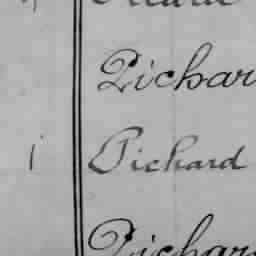 Pichar
i Pichard
Pichar